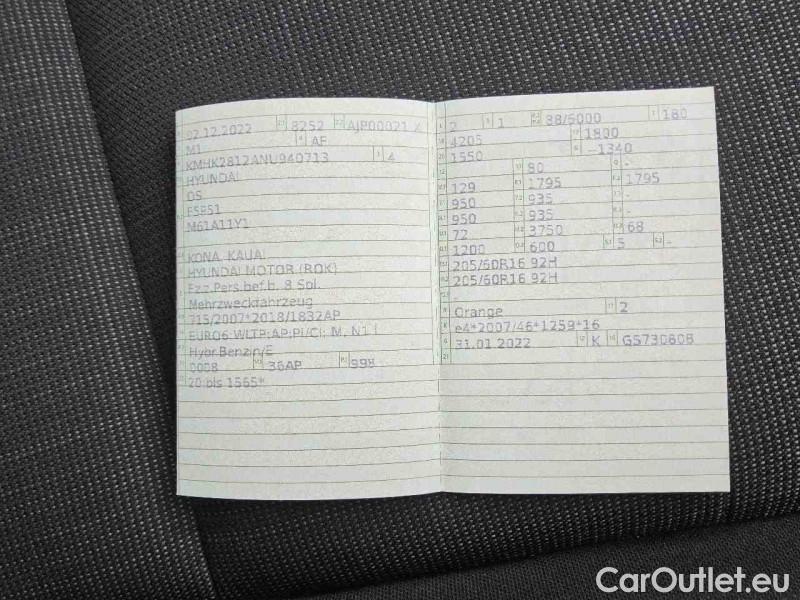 02.12.2022 8252 AJP00021 X
M1 AF
KMHK2812ANU940713 4
HYUNDAI
OS
F5P51
M61A11Y1
KONA, KAUAI
HYUNDAI MOTOR (ROK)
Fz.z.Pers.bef.b. 8 Spl.
Mehrzweckfahrzeug
715/2007*2018/1832AP
EURO6 WLTP;AP;PI/CI; M, N1 I
Hybr.Benzin/E
0008 36AP 998
20 bis 1565*
2 1 88/6000 180
4205 1800
1550 -1340
80 -
129 1795 1795
950 935 -
950 935 -
72 3750 68
1200 600 5 -
205/60R16 92H
205/60R16 92H
-
Orange 2
e4*2007/46*1259*16
31.01.2022 K GS730808
CarOutlet.eu